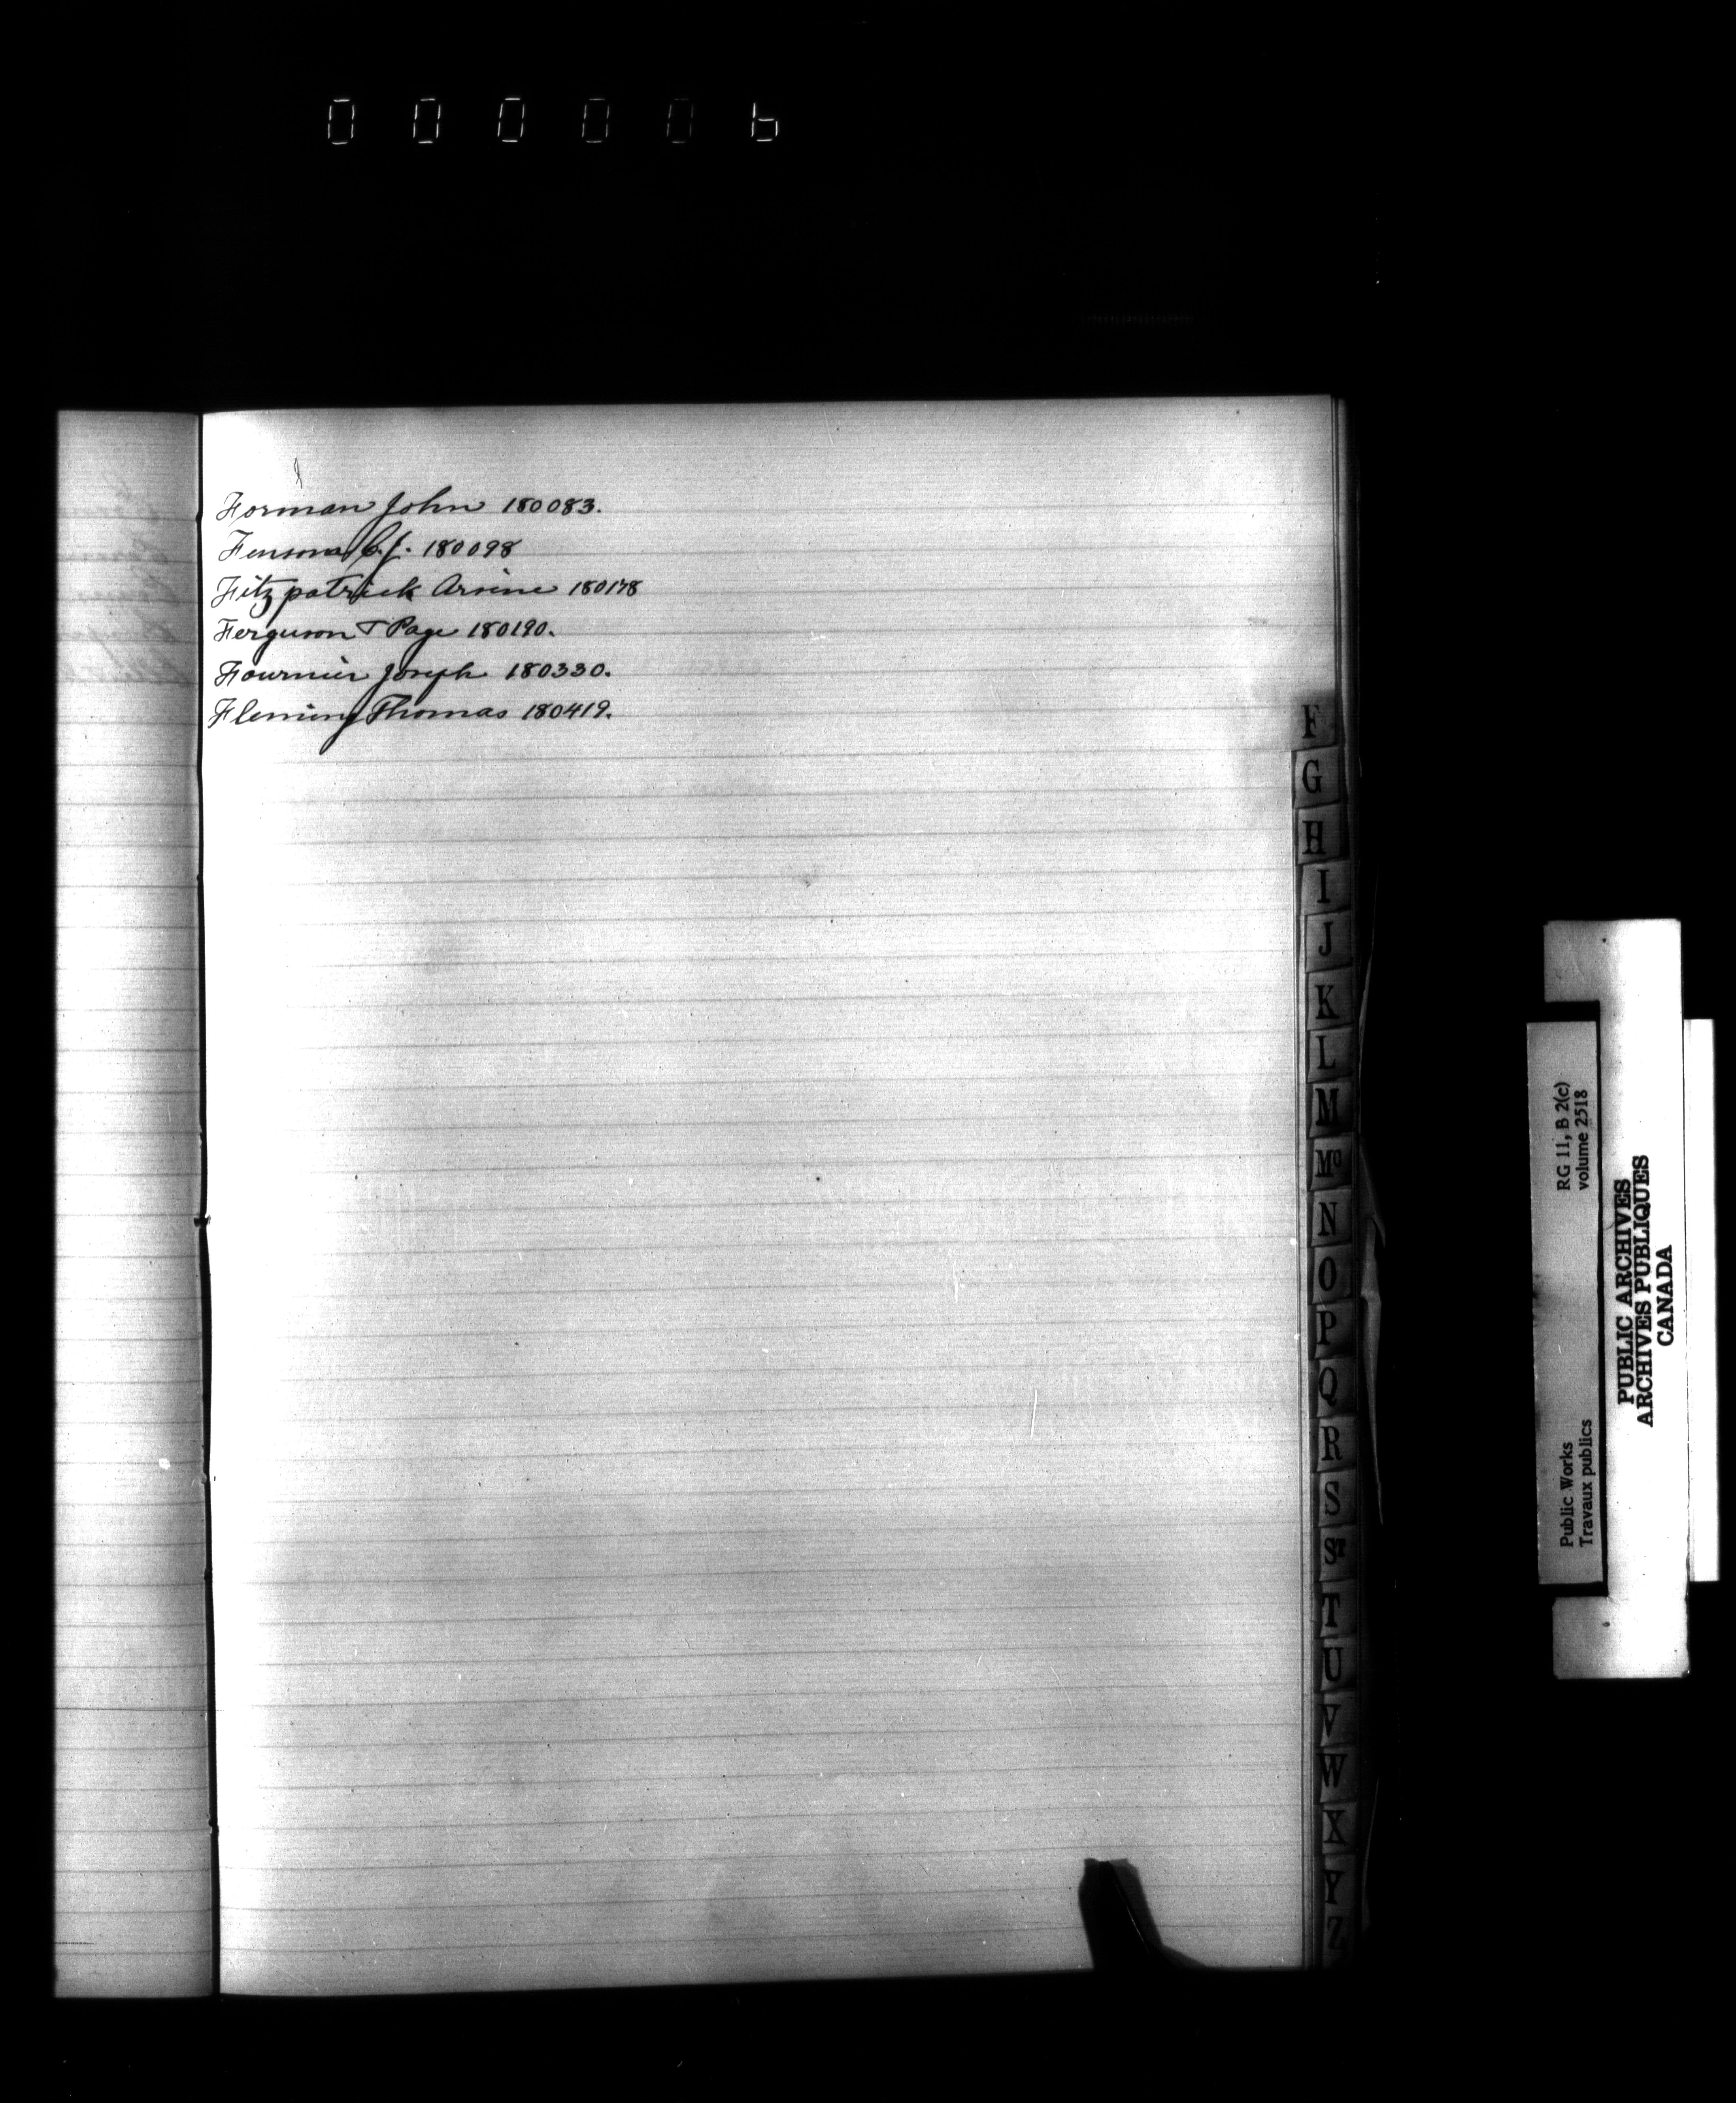 000006
Forman John 180083.
Fensom C. J. 180098
Fitzpatrick Arsine 180178
Ferguson & Page 180190.
Fournier Joseph 180330.
Fleming Thomas 180419.
F
G
H
I
J
K
L
M
Mc
N
O
P
Q
R
S
St
T
U
V
W
X
Y
Z
Public Works
Travaux publics
RG 11, B 2(c)
volume 2518
PUBLIC ARCHIVES
ARCHIVES PUBLIQUES
CANADA